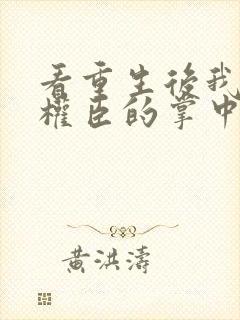 看重生後我
權臣的掌中
黃洪濤